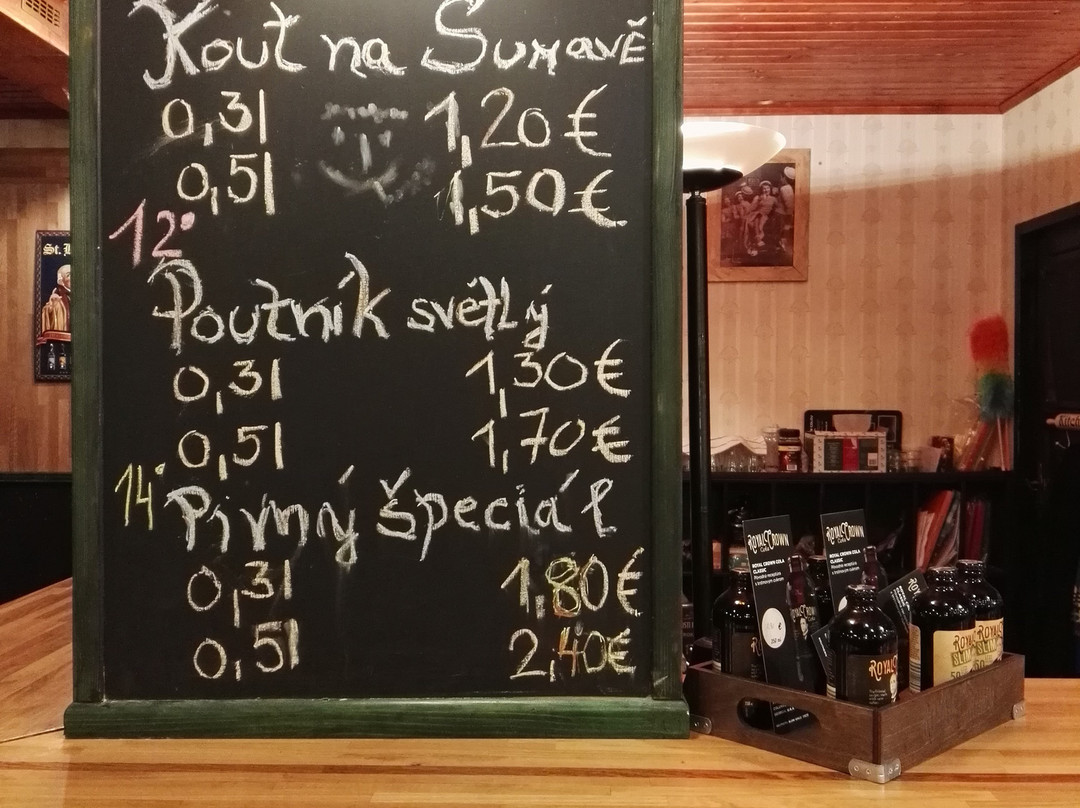 Kout na Šumavě
0,3l 1,20 €
0,5l 1,50 €
12°
Poutník světlý
0,3l 1,30 €
0,5l 1,70 €
14°
Pivný špeciál
0,3l 1,80 €
0,5l 2,40 €
St.
ROYAL CROWN
Cola
ROYAL CROWN COLA
CLASSIC
ROYAL CROWN
Cola
ROYAL CROWN COLA
CLASSIC
ROYAL
ROYAL
SLIM
SLIM